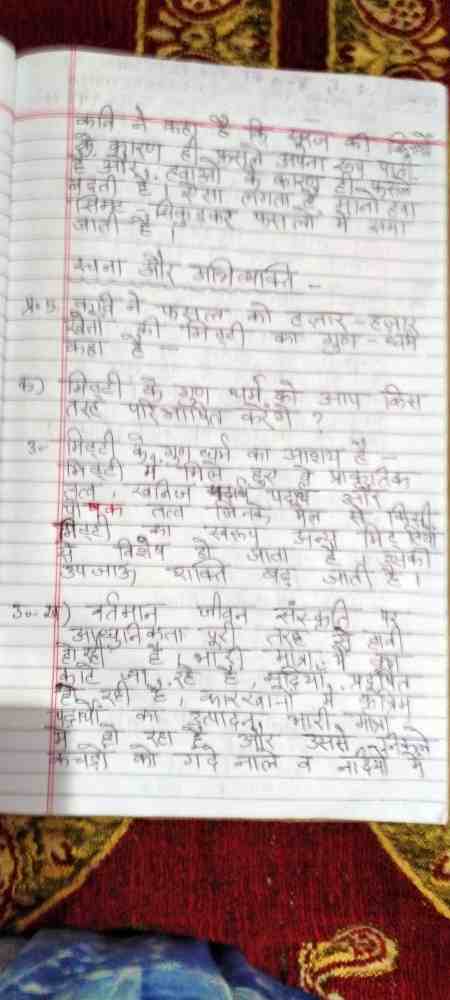 कवि ने कहा है कि सूरज की किरणों
के कारण ही फसलें अपना रूप पाती
है और हवाओं के कारण ही फसलें
लगता है मानो हवा
सिमट सिकुड़कर फसलों में समा
जाती है ।
रचना और अभिव्यक्ति –
प्र.5 कवि ने फसल को हज़ार-हज़ार
खेतों की मिट्टी का गुण-धर्म
कहा है –
क) मिट्टी के गुण धर्म को आप किस
तरह परिभाषित करेंगे ?
उ- मिट्टी के गुण धर्म का आशय है –
मिट्टी में मिले हुए प्राकृतिक
तत्व, खनिज पदार्थ और
पोषक तत्व जिनके मेल से किसी
मिट्टी का स्वरूप अन्य
से विशेष हो जाता है उसकी
उपजाऊ शक्ति बढ़ जाती है ।
उ- वर्तमान जीवन संस्कृति पर
आधुनिकता पूरी तरह से हावी
हो रही है, भारी मात्रा में वृक्ष
काटे जा रहे है, नदियाँ प्रदूषित
हो रही है, कारखानों में कृत्रिम
पदार्थों का उत्पादन भारी मात्रा
में हो रहा है और उससे निकले
कचड़ो को गंदे नाले व नदियों में